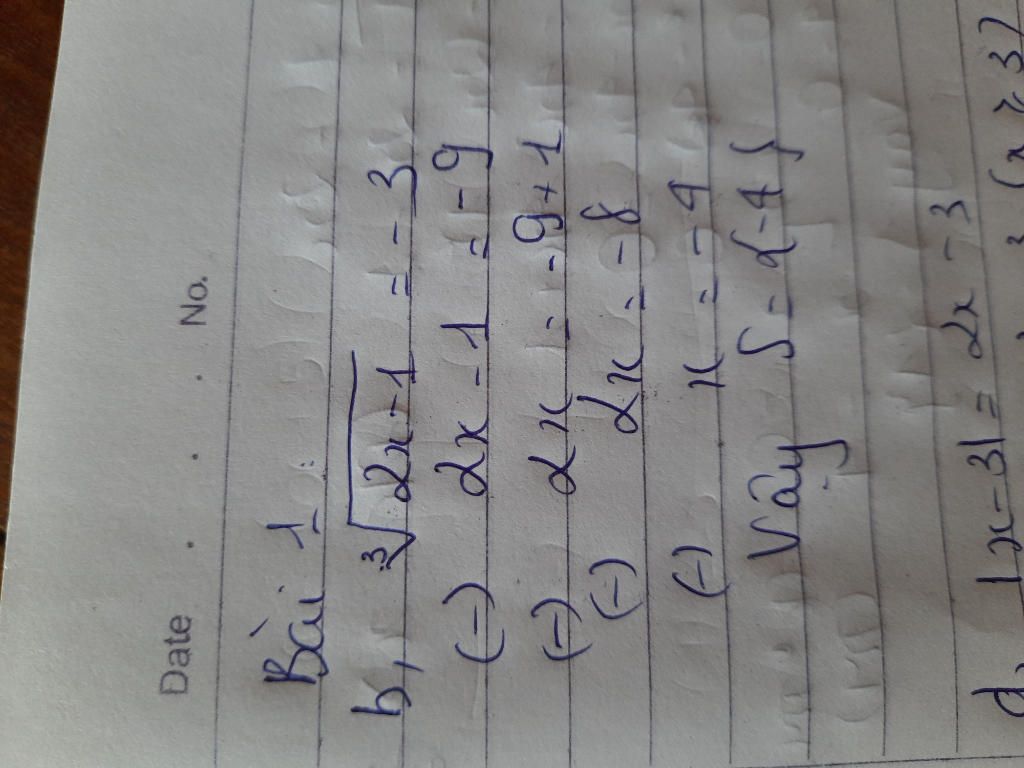 Date . . . No.
Bài 1
b, ∛2x-1 = -3
(-) 2x - 1 = -9
(-) 2x = -9 + 1
(-) 2x = -8
(-) x = -4
Vậy S = {-4}
d, |x-3| = 2x - 3